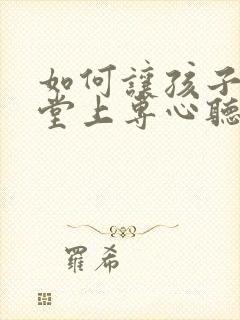 如何讓孩子
堂上專心聽
羅希